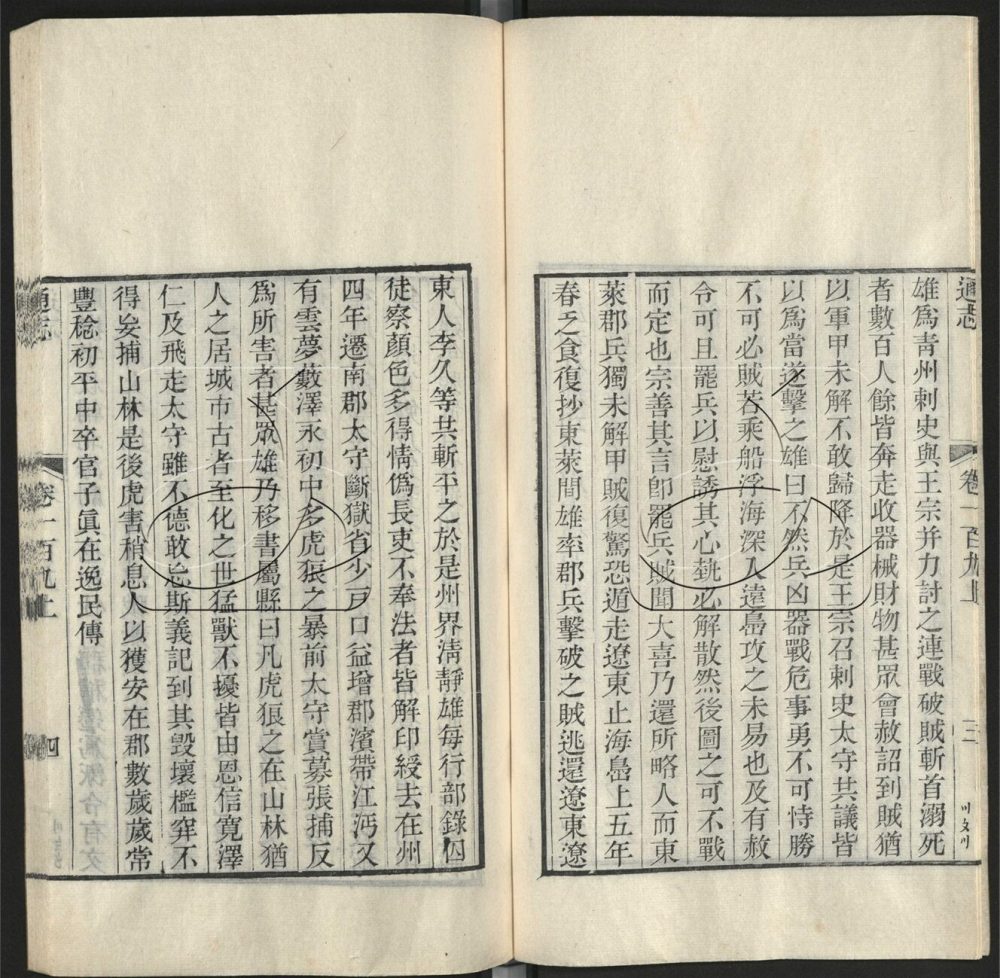 通志
卷一百九上
三
雄爲靑州刺史與王宗并力討之連戰破賊斬首溺死
者數百人餘皆奔走收器械財物甚眾會赦詔到賊猶
以軍甲未解不敢歸降於是王宗召刺史太守共議皆
以爲當遂擊之雄曰不然兵凶器戰危事勇不可恃勝
不可必賊若乘船浮海深入遠島攻之未易也及有赦
令可且罷兵以慰誘其心埶必解散然後圖之可不戰
而定也宗善其言卽罷兵賊聞大喜乃還所略人而東
萊郡兵獨未解甲賊復驚恐遁走遼東止海島上五年
春乏食復抄東萊間雄率郡兵擊破之賊逃還遼東遼
東人李久等共斬平之於是州界淸靜雄每行部錄囚
徒察顏色多得情僞長吏不奉法者皆解印綬去在州
四年遷南郡太守斷獄省少戸口益增郡濱帶江沔又
有雲夢藪澤永初中多虎狼之暴前太守賞募張捕反
爲所害者甚眾雄乃移書屬縣曰凡虎狼之在山林猶
人之居城市古者至化之世猛獸不擾皆由恩信寬澤
仁及飛走太守雖不德敢忘斯義記到其毀壞檻穽不
得妄捕山林是後虎害稍息人以獲安在郡數歲歲常
豐稔初平中卒官子眞在逸民傳
通志
卷一百九上
四